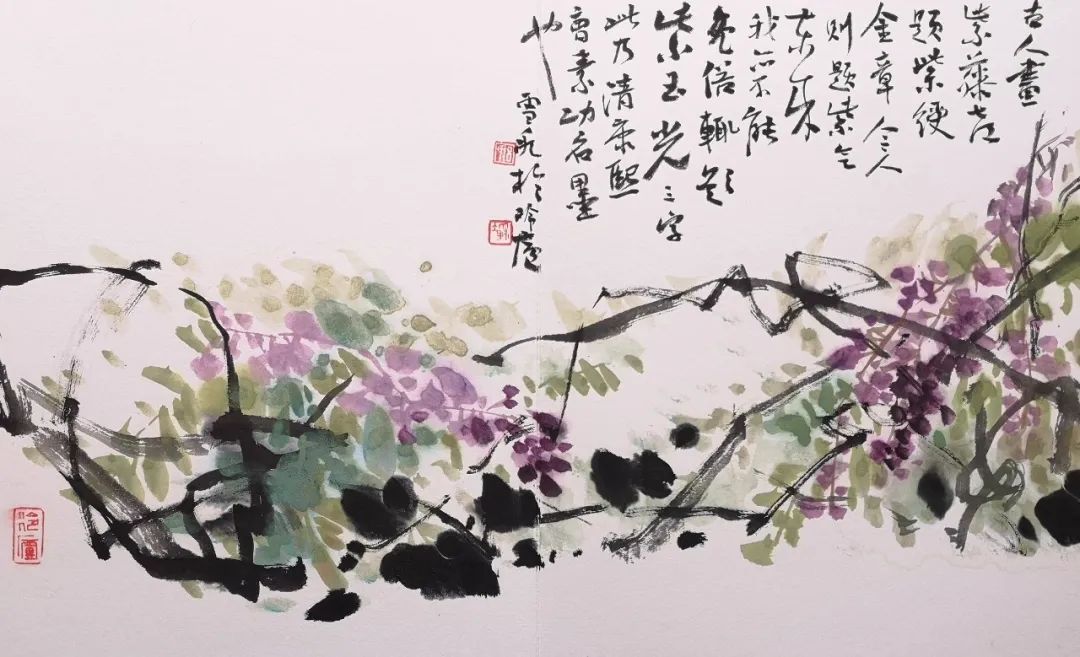 古人畫
紫藤
題紫綬
金章今人
則題紫气
东来
我亦不能
免俗輒題
紫玉光三字
此乃清康熙
曹素功名墨
也
雪 於 廬